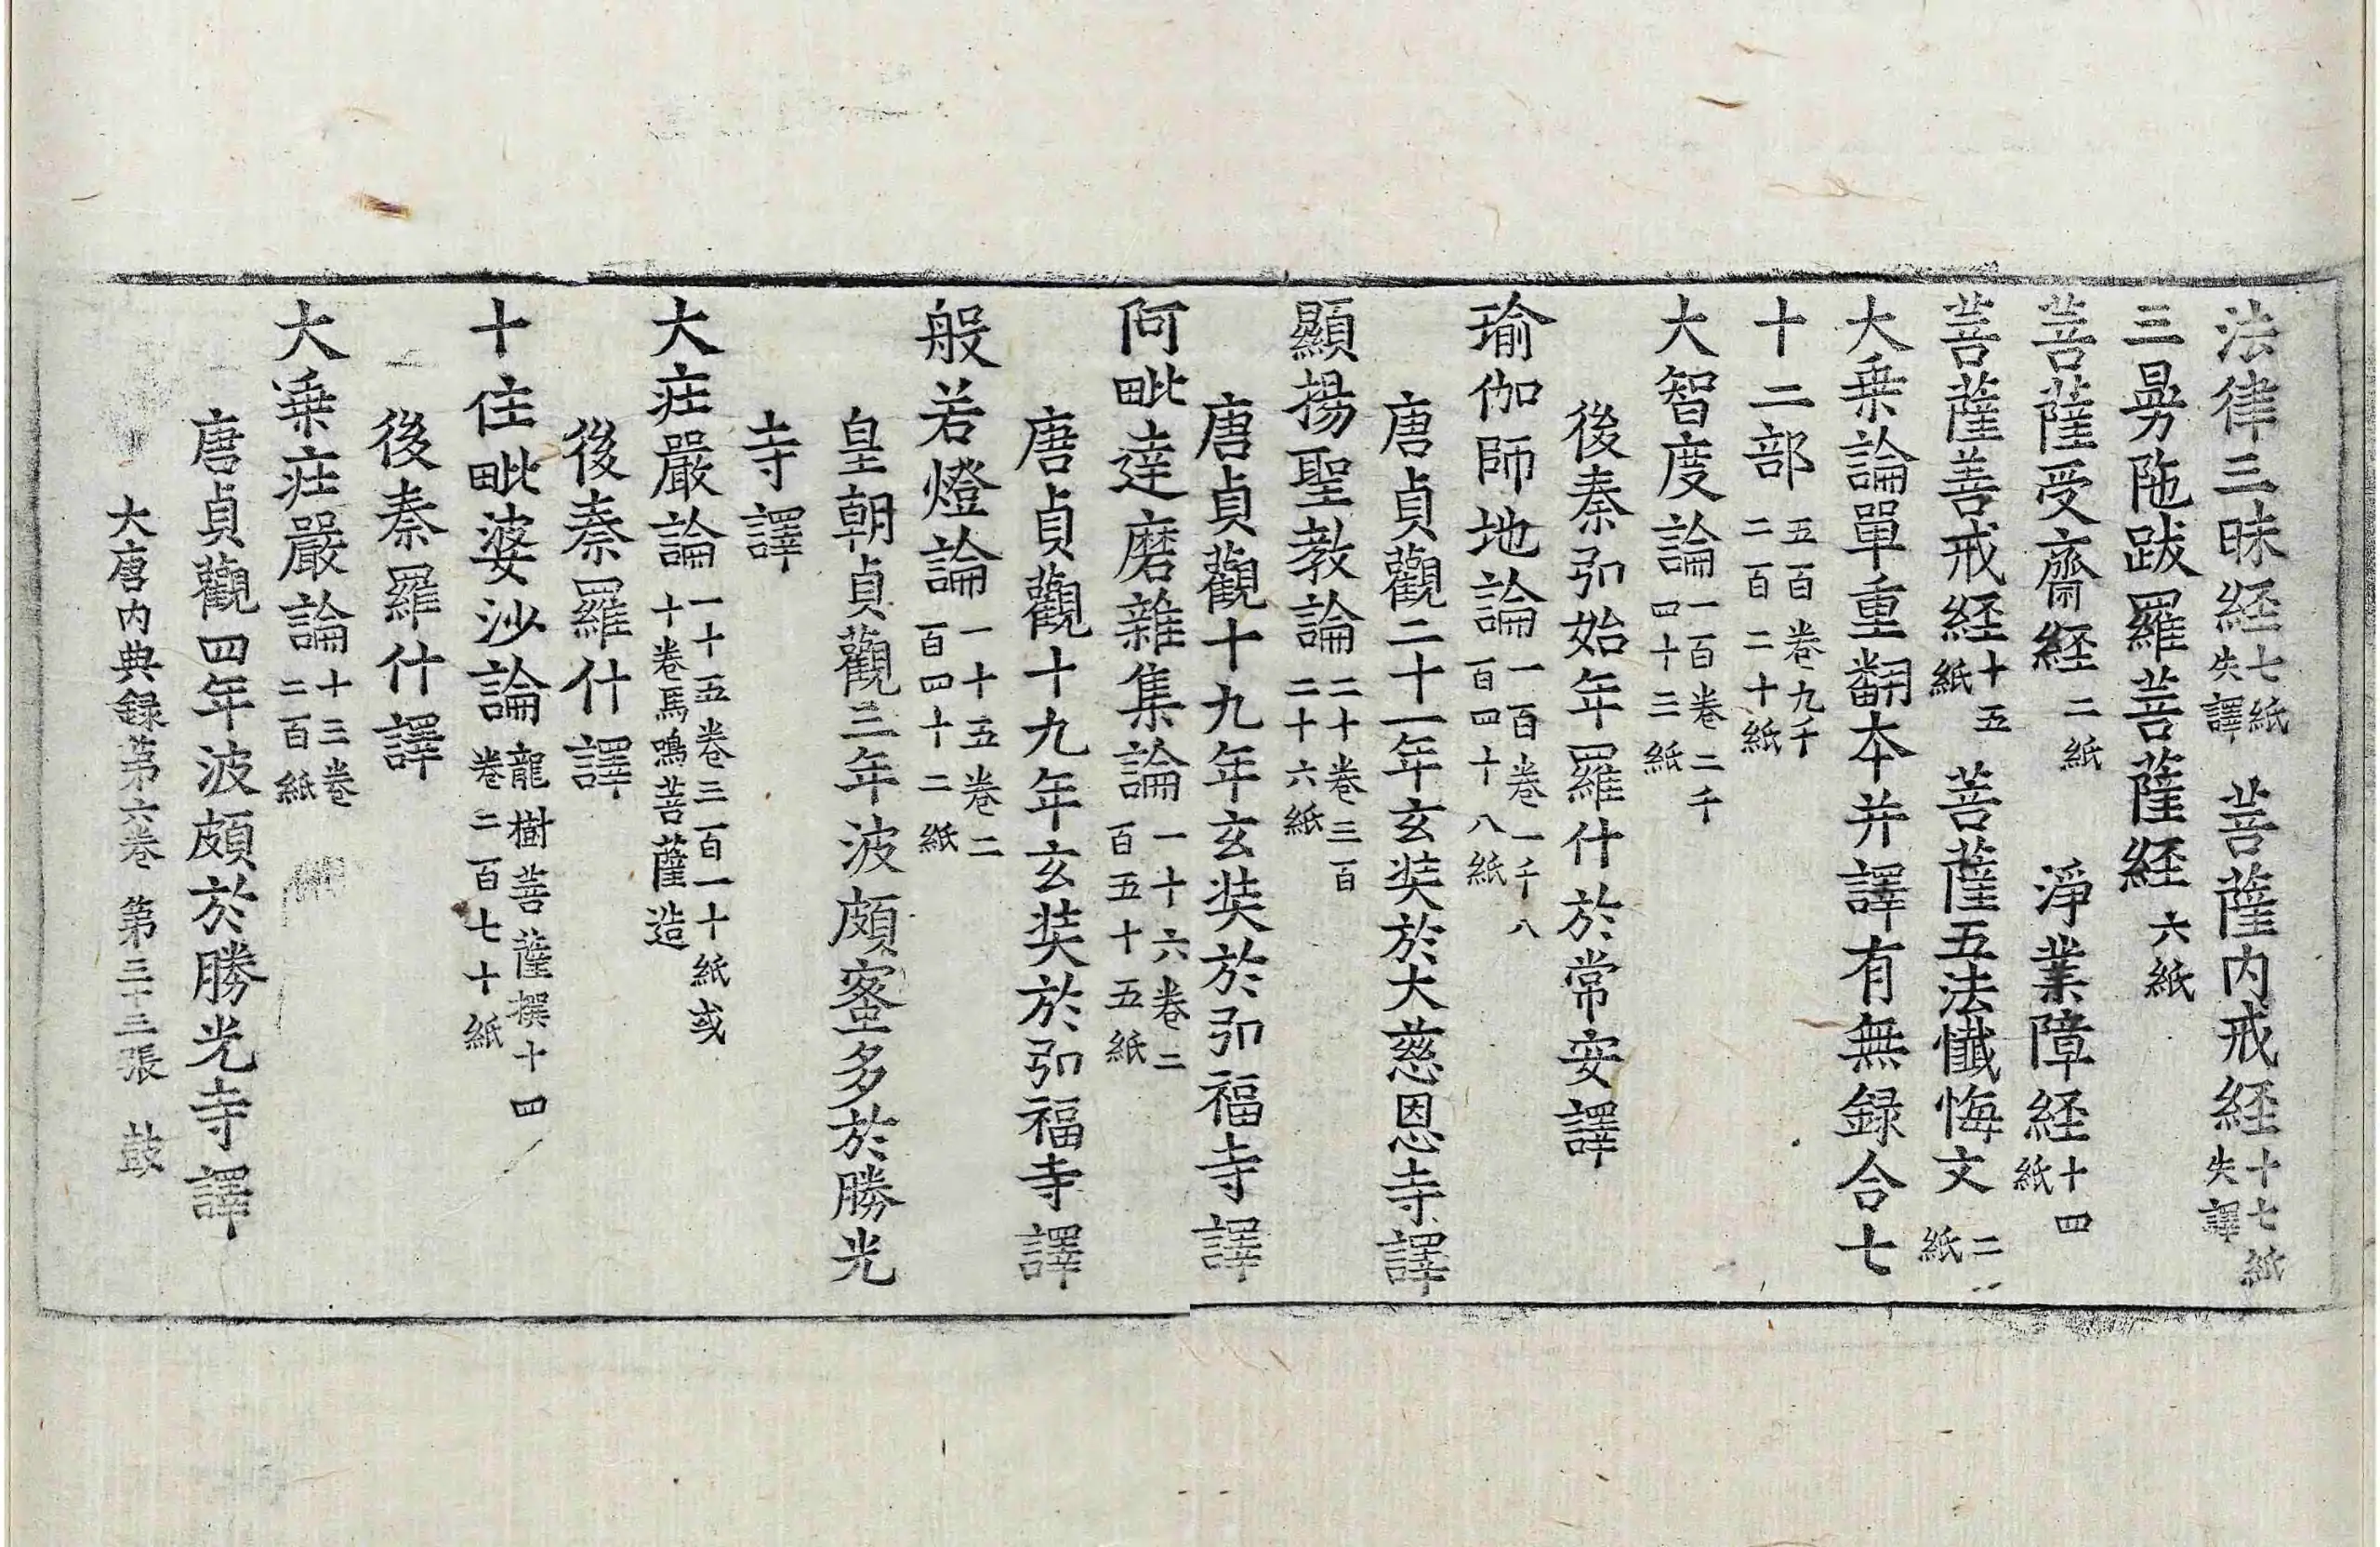 法律三昧経七紙失譯 菩薩内戒経十七紙失譯
三曼陁跋羅菩薩経六紙
菩薩受齋経二紙 淨業障経十四紙
菩薩善戒経十五紙 菩薩五法懺悔文二紙
大乗論單重翻本并譯有無録合七
十二部五百卷九千二百二十紙
大智度論一百卷二千四十三紙
後秦弘始年羅什於常安譯
瑜伽師地論一百卷一千八百四十八紙
唐貞觀二十一年玄奘於大慈恩寺譯
顯揚聖教論二十卷三百二十六紙
唐貞觀十九年玄奘於弘福寺譯
阿毗達磨雜集論一十六卷二百五十五紙
唐貞觀十九年玄奘於弘福寺譯
般若燈論一十五卷二百四十二紙
皇朝貞觀三年波頗蜜多於勝光
寺譯
大庄嚴論一十五卷三百一十紙或十卷馬鳴菩薩造
後秦羅什譯
十住毗婆沙論龍樹菩薩撰十四卷二百七十紙
後秦羅什譯
大乗庄嚴論十三卷二百紙
唐貞觀四年波頗於勝光寺譯
大唐内典録第六卷 第三十三張 鼓